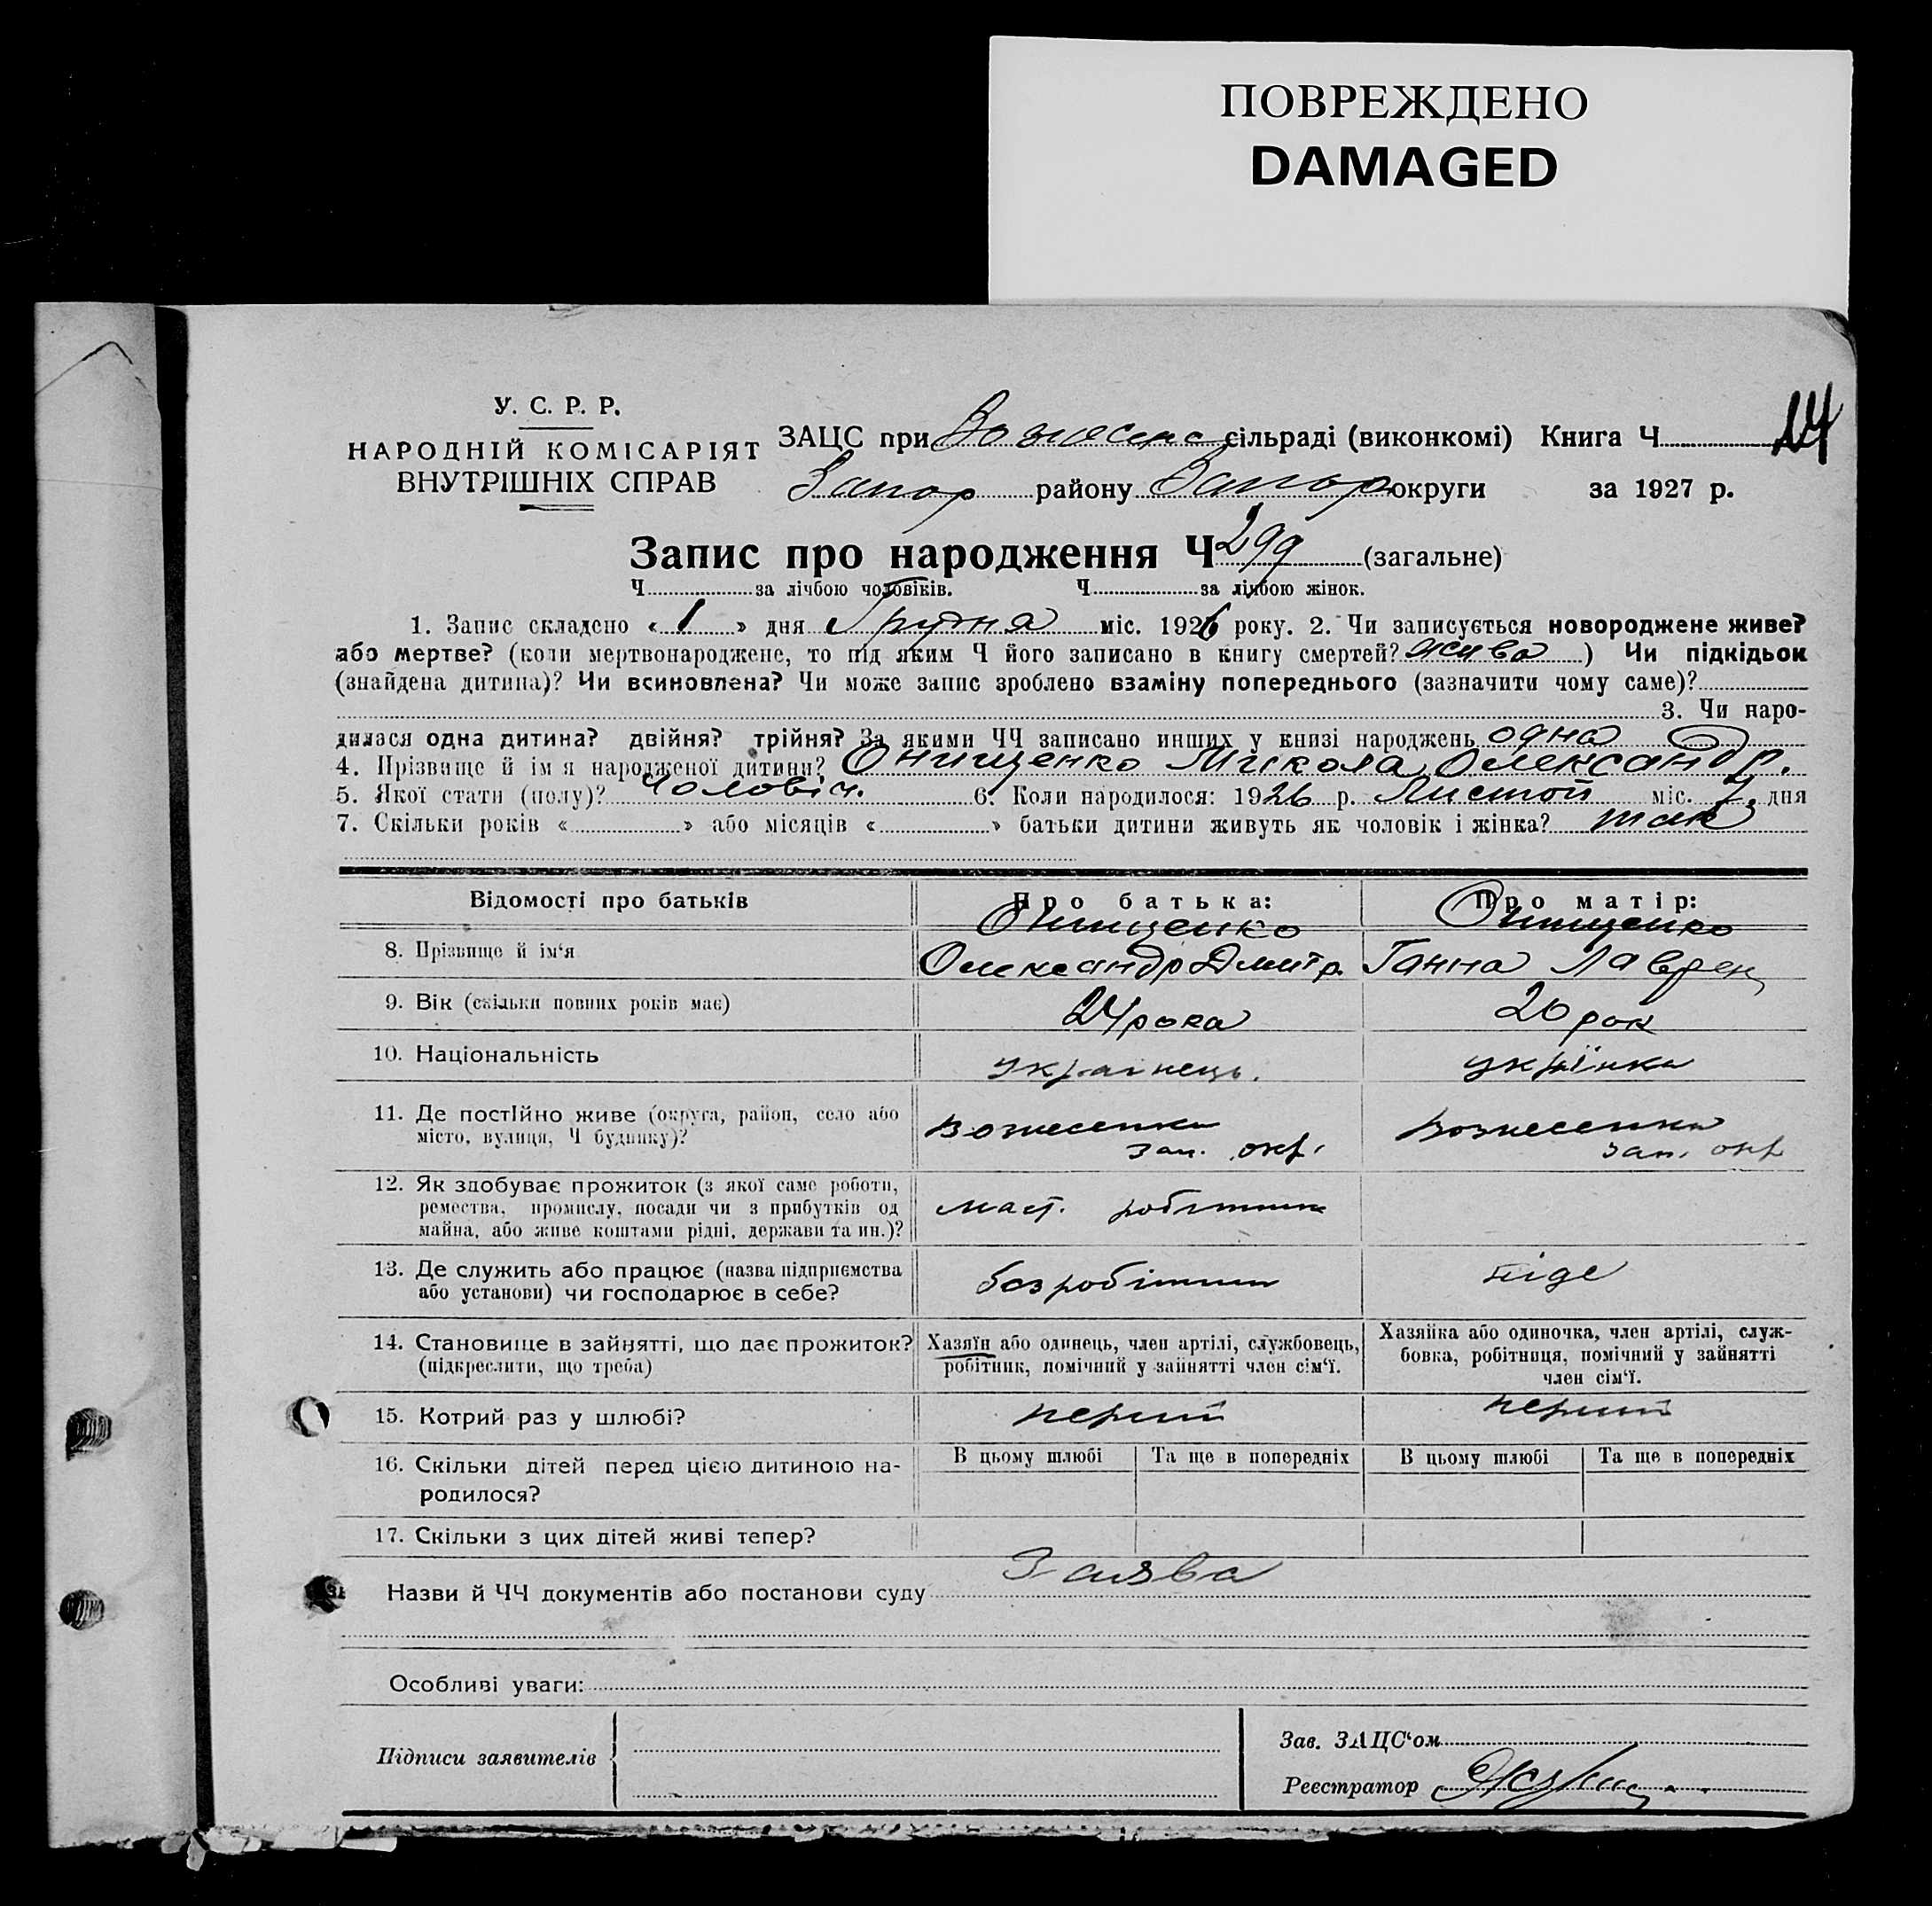 ПОВРЕЖДЕНО
DAMAGED
У. С. Р. Р.
НАРОДНІЙ КОМІСАРІЯТ
ВНУТРІШНІХ СПРАВ
ЗАЦС при Вознесенс сільраді (виконкомі) Книга Ч
Запор району Запор округи за 1927 р.
Запис про народження Ч 299 (загальне)
Ч за лічбою чоловіків. Ч за лічбою жінок.
1. Запис складено « 1 » дня Грудня міс. 1926 року. 2. Чи записується новороджене живе?
або мертве? (коли мертвонароджене, то під яким Ч його записано в книгу смертей? жива ) Чи підкідьок
(знайдена дитина)? Чи всиновлена? Чи може запис зроблено взаміну попереднього (зазначити чому саме)?
3. Чи наро-
дилася одна дитина? двійня? трійня? За якими ЧЧ записано инших у книзі народжень одна
4. Прізвище й ім я народженої дитини? Онищенко Микола Олександр.
5. Якої стати (полу)? Чоловіч. 6. Коли народилося: 1926 р. Листоп міс. 7 дня
7. Скільки років « » або місяців « » батьки дитини живуть як чоловік і жінка? так
Відомості про батьків Про батька: Про матір:
Онищенко Онищенко
8. Прізвище й ім‘я Олександр Дмитр. Ганна Лаврен
9. Вік (скільки повних років має) 24 рока 20 рок
10. Національність українець. укрїнка
11. Де постІйно живе (округа, район, село або
місто, вулиця, Ч будинку)?
Вознесенка Вознесенка
зап. окр. зап. окр
12. Як здобуває прожиток (з якої саме роботи,
ремества, промислу, посади чи з прибутків од
майна, або живе коштами рідні, держави та ин.)?
робітник
13. Де служить або працює (назва підприємства
або установи) чи господарює в себе?
безробітний ніде
14. Становище в зайнятті, що дає прожиток?
(підкреслити, що треба)
Хазяїн або одинець, член артілі, службовець,
робітник, помічний у зайнятті член сім‘ї.
Хазяйка або одиночка, член артілі, служ-
бовка, робітниця, помічний у зайнятті
член сім‘ї.
15. Котрий раз у шлюбі? перший перший
16. Скільки дітей перед цією дитиною на-
родилося?
В цьому шлюбі Та ще в попередніх В цьому шлюбі Та ще в попередніх
17. Скільки з цих дітей живі тепер?
Назви й ЧЧ документів або постанови суду Заява
Особливі уваги:
Підписи заявителів
Зав. ЗАЦС‘ом
Реєстратор